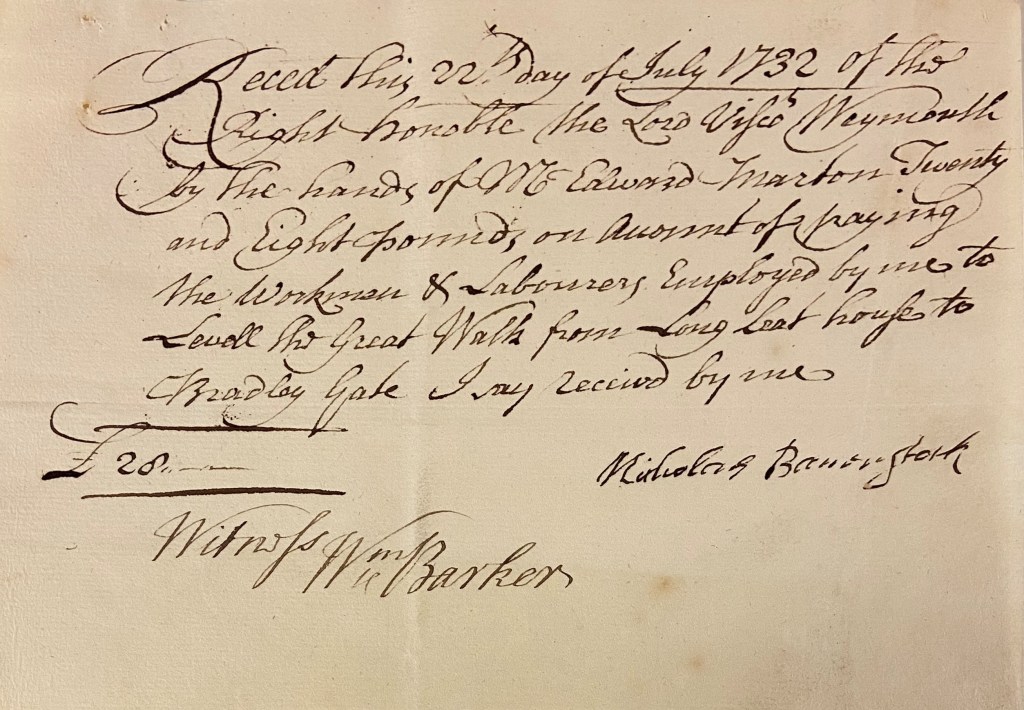 Reced this 22th day of July 1732 of the
Right honoble the Lord Viscot Weymouth
by the hands of Mr Edward Marton Twenty
and Eight pounds on Account of paying
the Workmen & Labourers Employed by me to
Levell the Great Walk from Long Leat house to
Bradley Gate I say receivd by me
£28..——
Nicholas Baverstock
Witness Wm Barker